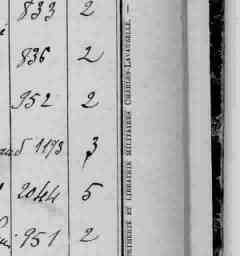 833 2
836 2
952 2
1193 3
2044 5
951 2
PRIMERIE ET LIBRAIRIE MILITAIRES CHARLES-LAVAUZELLE. —